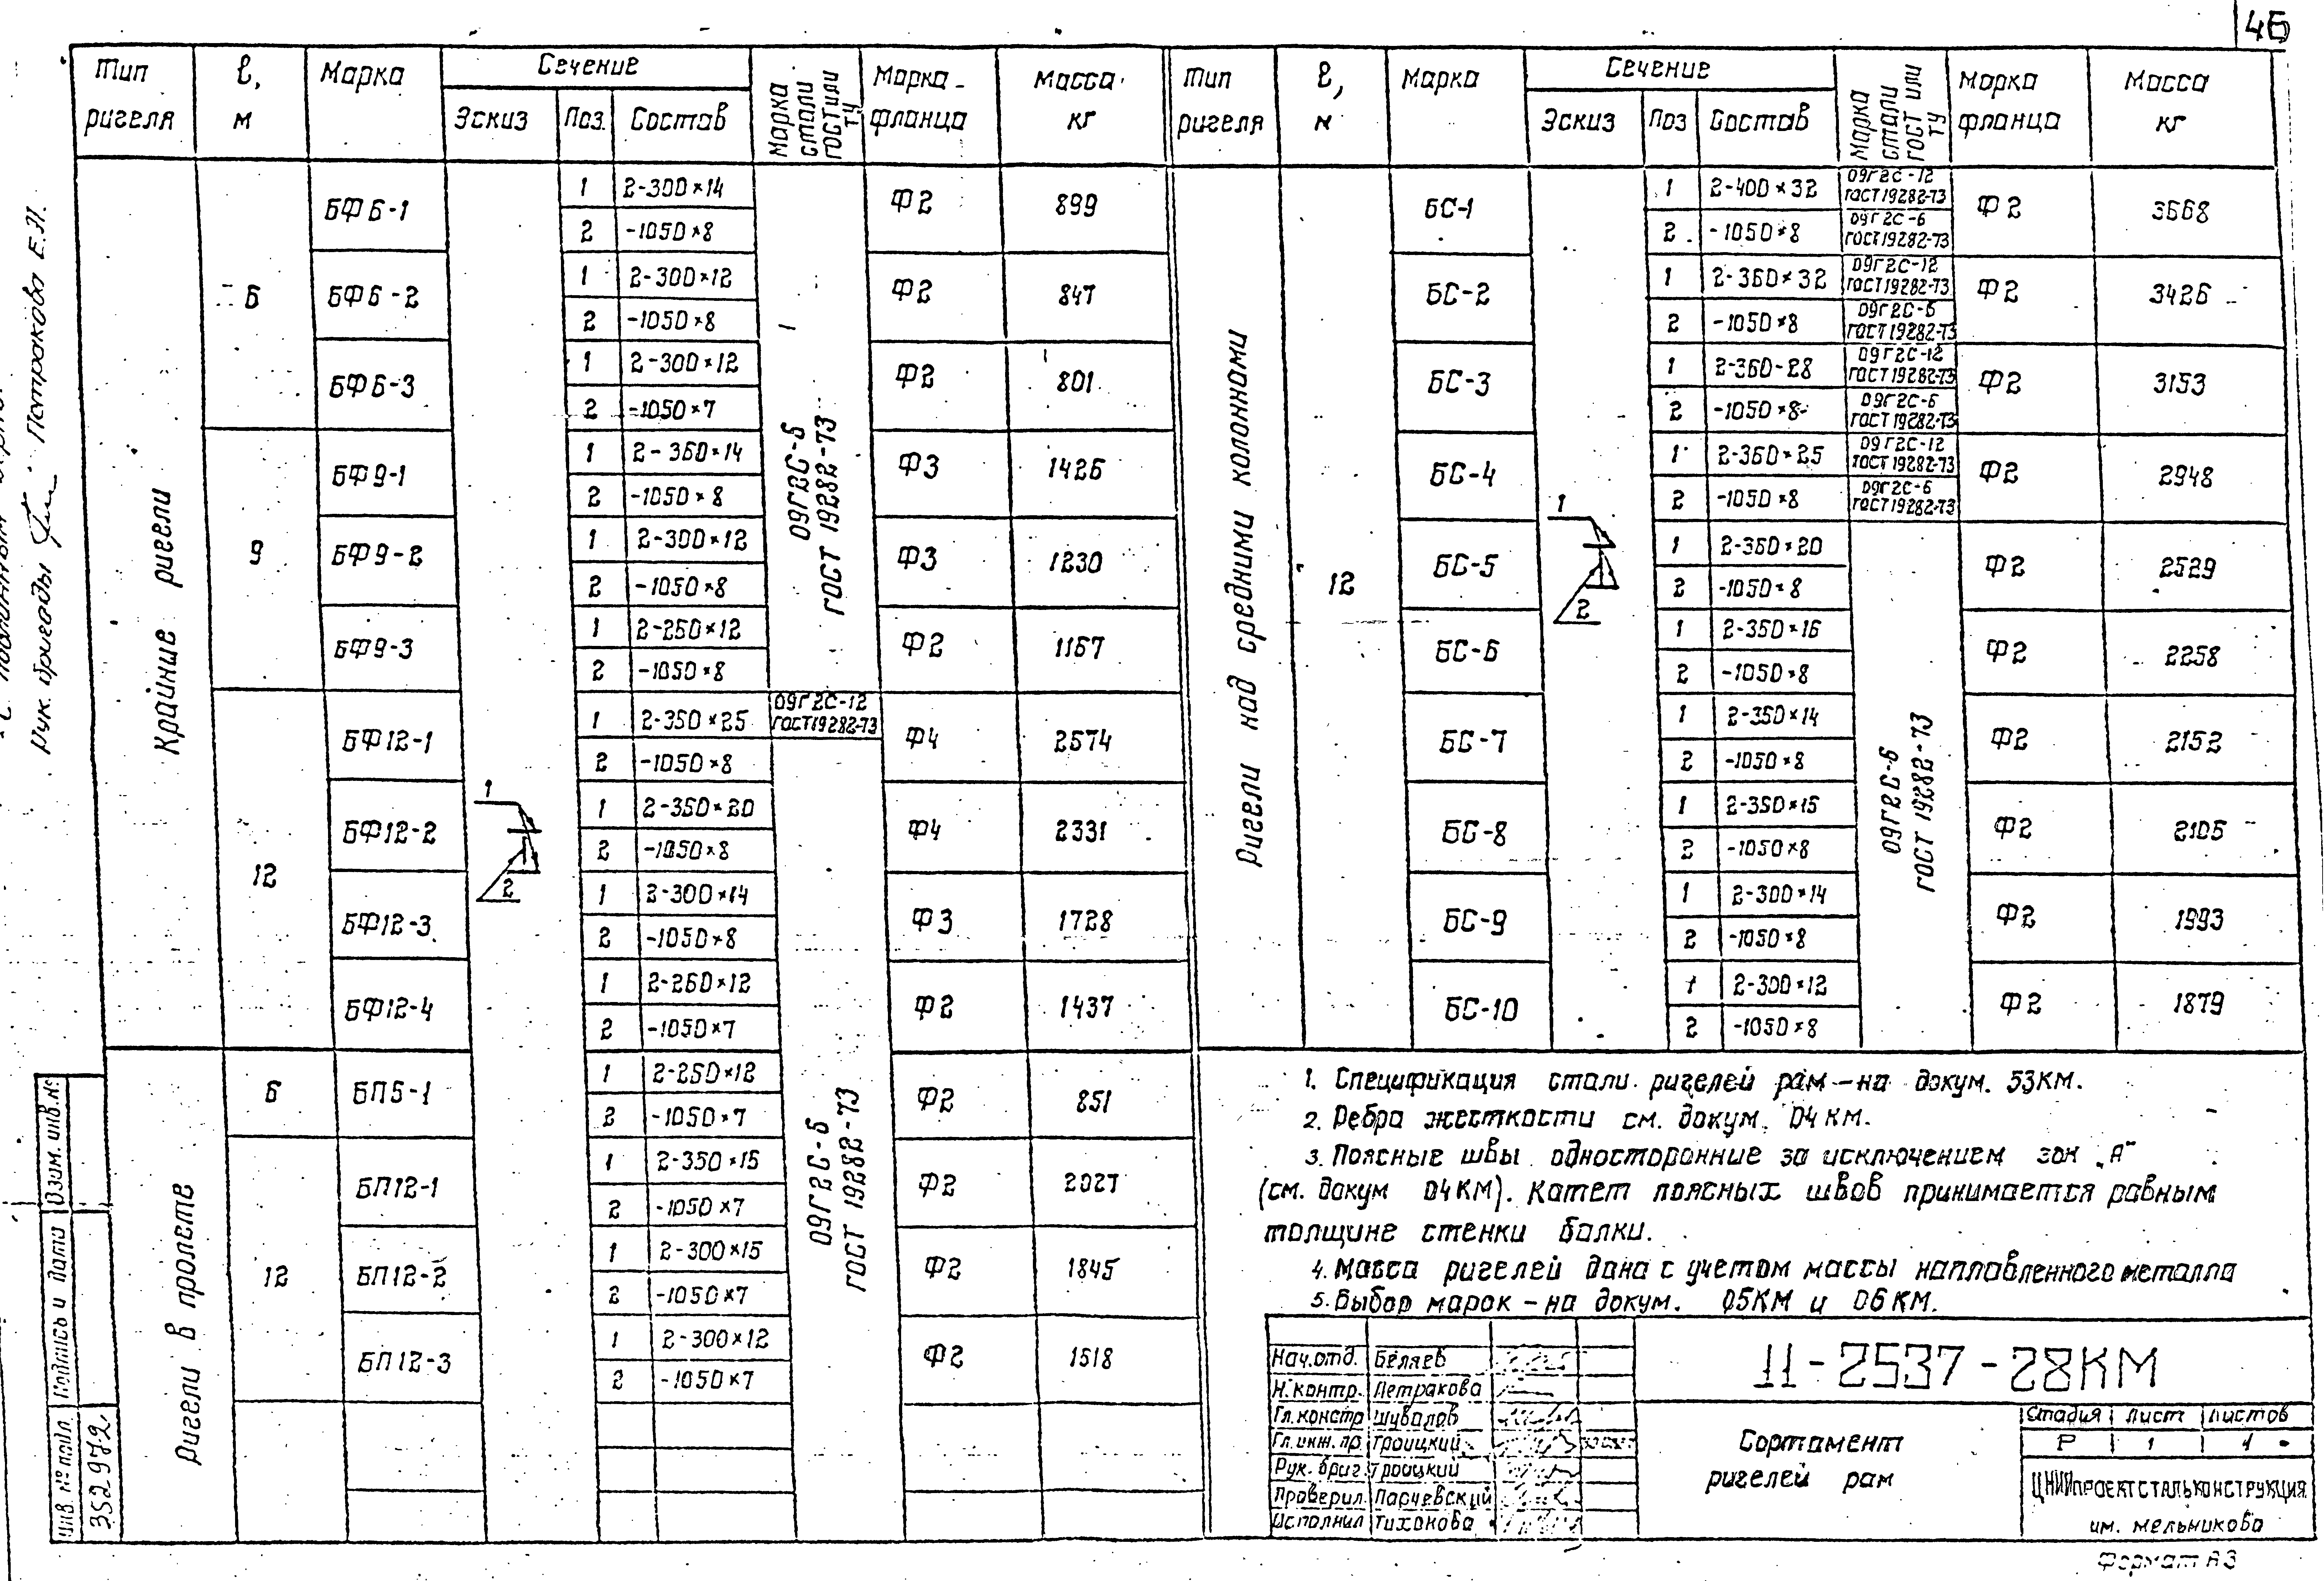 46
Тип ригеля
ℓ, м
Марка
Сечение
Эскиз
Поз.
Состав
Марка стали ГОСТ или ТУ
Марка фланца
Масса кг
Крайние ригели
6
БФ6-1
1 2-300×14
2 -1050×8
Ф2
899
БФ6-2
1 2-300×12
2 -1050×8
Ф2
847
БФ6-3
1 2-300×12
2 -1050×7
Ф2
801
9
БФ9-1
1 2-360×14
2 -1050×8
Ф3
1426
БФ9-2
1 2-300×12
2 -1050×8
Ф3
1230
БФ9-3
1 2-260×12
2 -1050×8
Ф2
1167
09Г2С-6
ГОСТ 19282-73
12
БФ12-1
1 2-350×25
09Г2С-12
ГОСТ19282-73
2 -1050×8
Ф4
2674
БФ12-2
1 2-360×20
2 -1050×8
Ф4
2331
БФ12-3
1 2-300×14
2 -1050×8
Ф3
1728
БФ12-4
1 2-260×12
2 -1050×7
Ф2
1437
1
2
Ригели в пролете
6
БП6-1
1 2-260×12
2 -1050×7
Ф2
851
12
БП12-1
1 2-350×16
2 -1050×7
Ф2
2027
БП12-2
1 2-300×16
2 -1050×7
Ф2
1845
БП12-3
1 2-300×12
2 -1050×7
Ф2
1518
09Г2С-6
ГОСТ 19282-73
Тип ригеля
ℓ, м
Марка
Сечение
Эскиз
Поз
Состав
Марка стали ГОСТ или ТУ
Марка фланца
Масса кг
Ригели над средними колоннами
12
БС-1
1 2-400×32
09Г2С-12
ГОСТ19282-73
2 -1050×8
09Г2С-6
ГОСТ19282-73
Ф2
3668
БС-2
1 2-360×32
09Г2С-12
ГОСТ19282-73
2 -1050×8
09Г2С-6
ГОСТ19282-73
Ф2
3426
БС-3
1 2-360-28
09Г2С-12
ГОСТ19282-73
2 -1050×8
09Г2С-6
ГОСТ19282-73
Ф2
3153
БС-4
1 2-360×25
09Г2С-12
ГОСТ19282-73
2 -1050×8
09Г2С-6
ГОСТ19282-73
Ф2
2948
БС-5
1 2-360×20
2 -1050×8
Ф2
2529
БС-6
1 2-360×16
2 -1050×8
Ф2
2258
БС-7
1 2-350×14
2 -1050×8
Ф2
2152
БС-8
1 2-350×16
2 -1050×8
Ф2
2105
БС-9
1 2-300×14
2 -1050×8
Ф2
1993
БС-10
1 2-300×12
2 -1050×8
Ф2
1879
1
2
09Г2С-6
ГОСТ 19282-73
1. Спецификация стали ригелей рам – на докум. 53КМ.
2. Ребра жесткости см. докум. 04КМ.
3. Поясные швы односторонние за исключением зон „А"
(см. докум 04КМ). Катет поясных швов принимается равным
толщине стенки балки.
4. Масса ригелей дана с учетом массы наплавленного металла
5. Выбор марок – на докум. 05КМ и 06КМ.
Нач.отд. Беляев
Н.контр. Петракова
Гл.констр Шувалов
Гл.инж.пр Троицкий
Рук.бриг. Троицкий
Проверил Парчевский
Исполнил Тихонова
11-2537-28КМ
Сортамент
ригелей рам
Стадия Лист Листов
Р 1 1
ЦНИИПРОЕКТСТАЛЬКОНСТРУКЦИЯ
им. Мельникова
Формат А3
Рук. бригады Петракова Е.Н.
Инв. № подл. Подпись и дата Взам. инв. №
352972